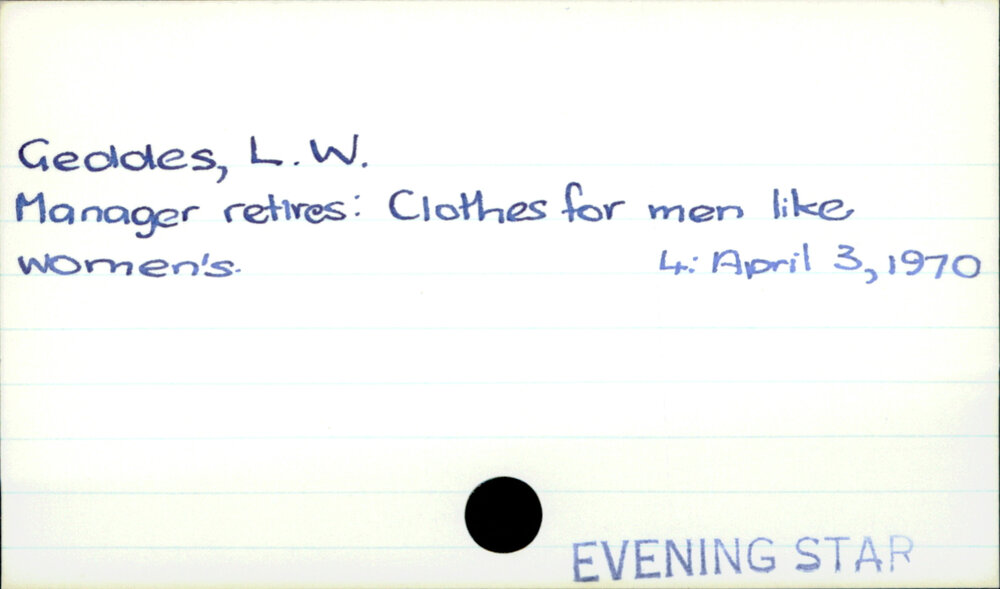 Geddes, L.W.
Manager retires: Clothes for men like
women's. 4: April 3, 1970
EVENING STAR